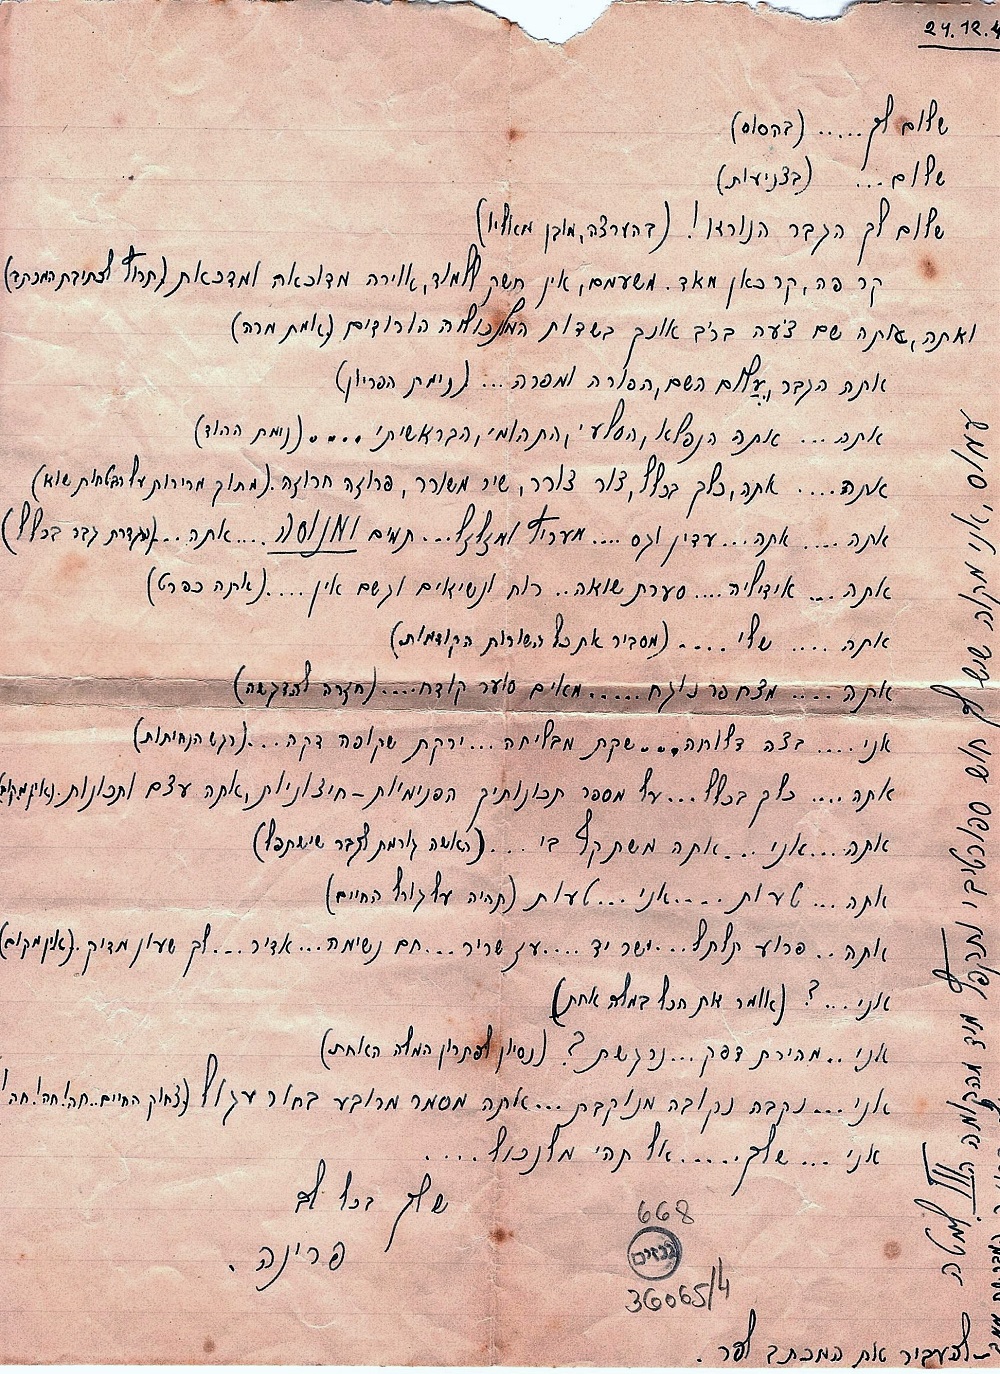 24.12.4
שלום לך..... (בהסוס)
שלום... (בצניעות)
שלום לך הגבר הנורצו! (בהערצה, מובן מאליו)
קר פה, קר כאן מאד. משעמם, אין חשק ללמוד, אוירה מדוכאה ומדכאת (תרוץ לכתיבת המכתב)
ואתה, עתה שם צ'עה ברב אונך בשדות המלנכוליה הורודים (אמת מרה)
אתה הגבר, עלום השם, הפורה ומפרה... (נימת הפריון)
אתה... אתה הנפלא, הסלעי, התהומי, הבראשיתי.... (נימת ההוד)
אתה.... אתה, כלך בכלל, צור צורר, שיר משורר, פרוצה חרוצה. (מתוך מהירות על הבטחות שוא)
אתה.... אתה... עדין וגס.... מעריץ ומזלזל... תמים ומנוסה.... אתה... (הגדרת גבר בכלל)
אתה... אידיליה.... סערת שואה.. רוח ונשיאים וגשם אין.... (אתה כפרט)
אתה.... שלי.... (מסביר את כל השורות הקודמות)
אתה.... מצחפר נוגח..... מאים סוער קודח.... (חזרה להדגשה)
אני.... בצה דלוחה... שקת מבליחה... ירקת שקופה דקה... (רגש הנחיתות)
אתה.... כלך בכלל... על מספר תכונותיך הפנימיות-חיצוניות, אתה עצם ותכונות.
אתה... אני... אתה משתקף בי.... (האשה גורמת לגבר שישתפל)
אתה... טעות.... אני... טעות (תהיה על גורל החיים)
אתה.. פרוע תלתל... ישר יד.... עז שריר... חם נשימה... אדיר... לך שעון מדויק. (אין מקום)
אני....? (אומר את הכל במלה אחת)
אני.. מהירת דפק... נרגשת? (נסיון לפתרון המלה האחת)
אני... נקבה נקובה מנוקבת... אתה מסמר מרובע בחור עגול (צחוק החיים.. חה! חה! חה!
אני... שלך..... אל תהי מלנכולי....
שלך בכל לב
פרינה.
668
גנזים
36065/4
עמוס, אני מקוה שיש לך חוש ספורטיבי ותקפל מיד מהקומה הIII למטה
להעביר את המכתב לפר.